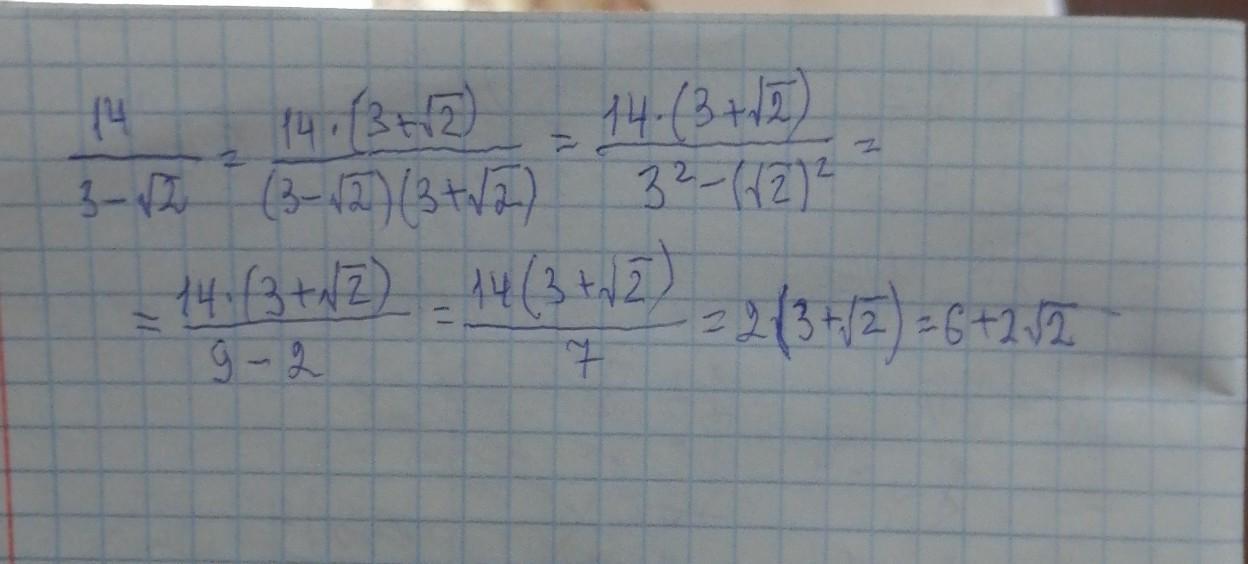 14/(3-√2) = 14·(3+√2)/((3-√2)(3+√2)) = 14·(3+√2)/(3²-(√2)²) =
= 14·(3+√2)/(9-2) = 14(3+√2)/7 = 2(3+√2) = 6+2√2